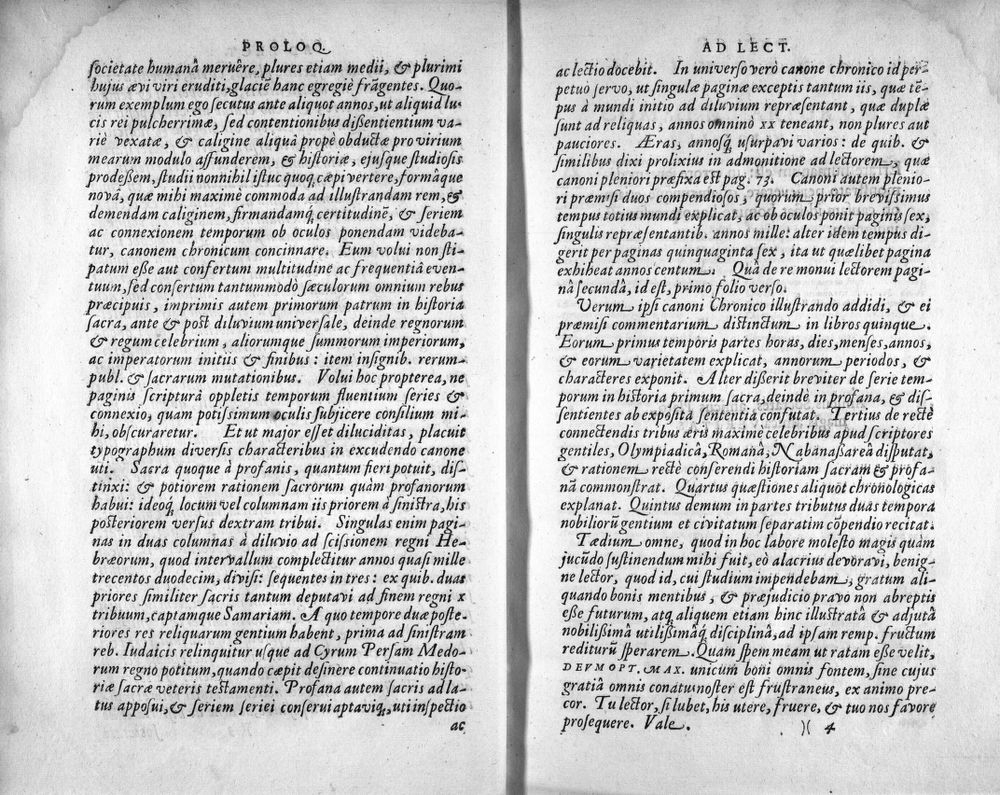 PROLOQ.
societate humanâ meruêre, plures etiam medii, & plurimi
hujus ævi viri eruditi, glaciē hanc egregiè frāgentes. Quo-
rum exemplum ego secutus ante aliquot annos, ut aliquid lu-
cis rei pulcherrimæ, sed contentionibus dissentientium va-
riè vexatæ, & caligine aliquâ propè obductæ pro virium
mearum modulo affunderem, & historiæ, ejusque studiosis
prodessem, studii nonnihil istuc quoq; cæpi vertere, formâque
novâ, quæ mihi maximè commoda ad illustrandam rem, &
demendam caliginem, firmandamq; certitudinē, & seriem
ac connexionem temporum ob oculos ponendam videba-
tur, canonem chronicum concinnare. Eum volui non sti-
patum esse aut confertum multitudine ac frequentiâ even-
tuum, sed consertum tantummodò sæculorum omnium rebus
præcipuis, imprimis autem primorum patrum in historia
sacra, ante & post diluvium universale, deinde regnorum
& regum celebrium, aliorumque summorum imperiorum,
ac imperatorum initiis & finibus: item insignib. rerum-
publ. & sacrarum mutationibus. Volui hoc propterea, ne
paginis scripturâ oppletis temporum fluentium series &
connexio, quam potissimum oculis subjicere consilium mi-
hi, obscuraretur. Et ut major esset diluciditas, placuit
typographum diversis characteribus in excudendo canone
uti. Sacra quoque à profanis, quantum fieri potuit, dis-
tinxi: & potiorem rationem sacrorum quàm profanorum
habui: ideoq; locum vel columnam iis priorem à sinistra, his
posteriorem versus dextram tribui. Singulas enim pagi-
nas in duas columnas à diluvio ad scissionem regni He-
bræorum, quod intervallum complectitur annos quasi mille
trecentos duodecim, divisi: sequentes in tres: ex quib. duas
priores similiter sacris tantum deputavi ad finem regni x
tribuum, captamque Samariam. A quo tempore duæ poste-
riores res reliquarum gentium habent, prima ad sinistram
reb. Iudaicis relinquitur usque ad Cyrum Persam Medo-
rum regno potitum, quando cæpit desinere continuatio histo-
riæ sacræ veteris testamenti. Profana autem sacris ad la-
tus apposui, & seriem seriei conserui aptaviq;, uti inspectio
ac
AD LECT.
ac lectio docebit. In universo verò canone chronico id per-
petuò servo, ut singulæ paginæ exceptis tantum iis, quæ tē-
pus à mundi initio ad diluvium repræsentant, quæ duplæ
sunt ad reliquas, annos omninò xx teneant, non plures aut
pauciores. Æras, annosq; usurpavi varios: de quib. &
similibus dixi prolixius in admonitione ad lectorem, quæ
canoni pleniori præfixa est pag. 73. Canoni autem plenio-
ri præmisi duos compendiosos, quorum prior brevissimus
tempus totius mundi explicat, ac ob oculos ponit paginis sex,
singulis repræsentantib. annos mille: alter idem tempus di-
gerit per paginas quinquaginta sex, ita ut quælibet pagina
exhibeat annos centum. Quâ de re monui lectorem pagi-
nâ secundâ, id est, primo folio verso.
Verum ipsi canoni Chronico illustrando addidi, & ei
præmisi commentarium distinctum in libros quinque.
Eorum primus temporis partes horas, dies, menses, annos,
& eorum varietatem explicat, annorum periodos, &
characteres exponit. Alter disserit breviter de serie tem-
porum in historia primum sacra, deinde in profana, & dis-
sentientes ab exposita sententia confutat. Tertius de rectè
connectendis tribus æris maximè celebribus apud scriptores
gentiles, Olympiadicâ, Romanâ, Nabanasareâ disputat,
& rationem rectè conserendi historiam sacram & profa-
nā commonstrat. Quartus quæstiones aliquot chronologicas
explanat. Quintus demum in partes tributus duas tempora
nobiliorū gentium et civitatum separatim cōpendio recitat.
Tædium omne, quod in hoc labore molesto magis quàm
jucūdo sustinendum mihi fuit, eò alacrius devoravi, benig-
ne lector, quod id, cui studium impendebam, gratum ali-
quando bonis mentibus, & præjudicio pravo non abreptis
esse futurum, atq; aliquem etiam hinc illustratâ & adjutâ
nobilissimâ utilissimâq; disciplinâ, ad ipsam remp. fructum
rediturū sperarem. Quam spem meam ut ratam esse velit,
DEVM OPT. MAX. unicum boni omnis fontem, sine cujus
gratiâ omnis conatus noster est frustraneus, ex animo pre-
cor. Tu lector, si lubet, his utere, fruere, & tuo nos favore
prosequere. Vale.
)( 4